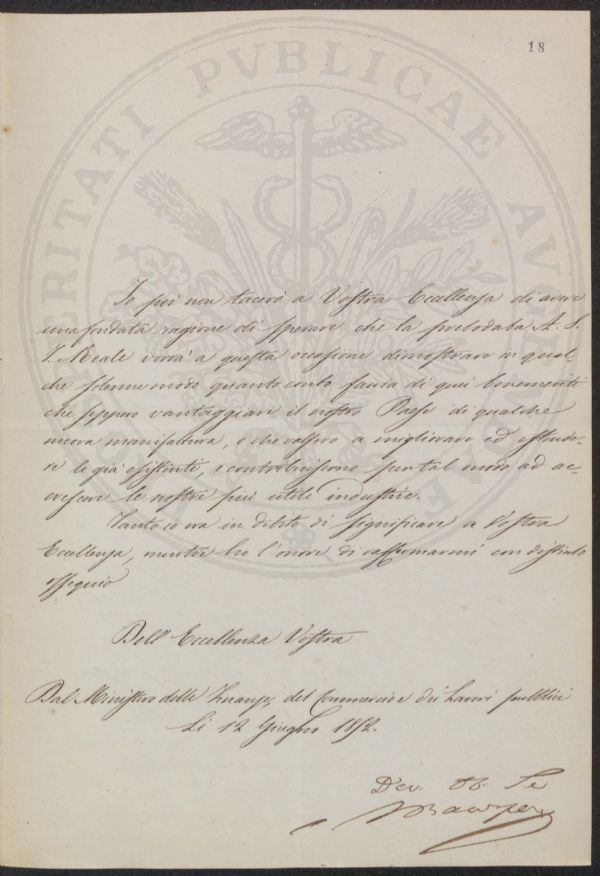 18
PROSPERITATI PVBLICAE AVGENDAE
Io poi non tacerò a Vostra Eccellenza di avere
una fondata ragione di sperare che la prelodata A. S.
I. Reale vorrà a questa occasione dimostrare in qual-
che solenne modo quanto conto faccia di quei benemeriti
che seppero vantaggiare il nostro Paese di qualche
nuova manifattura, o che valsero a migliorare ed estende-
re le già esistenti, e contribuissero per tal modo ad ac-
crescere le nostre più utili industrie.
Tanto io era in debito di significare a Vostra
Eccellenza, mentre ho l'onore di raffermarmi con distinto
ossequio
Dell' Eccellenza Vostra
Dal Ministero delle Finanze, del Commercio e dei Lavori pubblici
Li 12 Giugno 1852.
Dev. Ob. Se